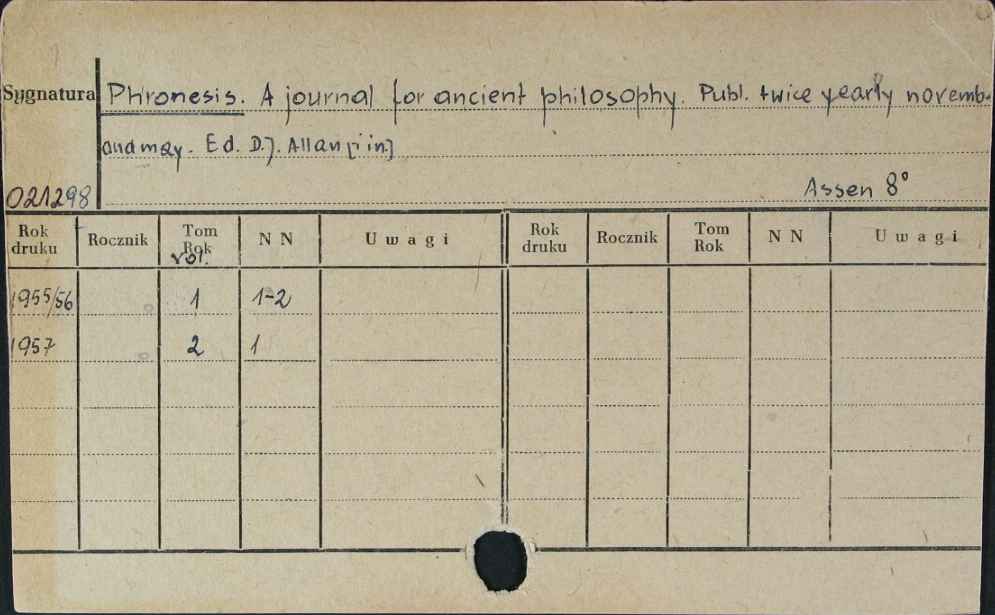 Sygnatura Phronesis. A journal for ancient philosophy. Publ. twice yearly novemb.
and may. Ed. D.J. Allan [i in.]
021298 Assen 8°
Rok druku Rocznik Tom Rok vol. N N Uwagi Rok druku Rocznik Tom Rok N N Uwagi
1955/56 1 1-2
1957 2 1